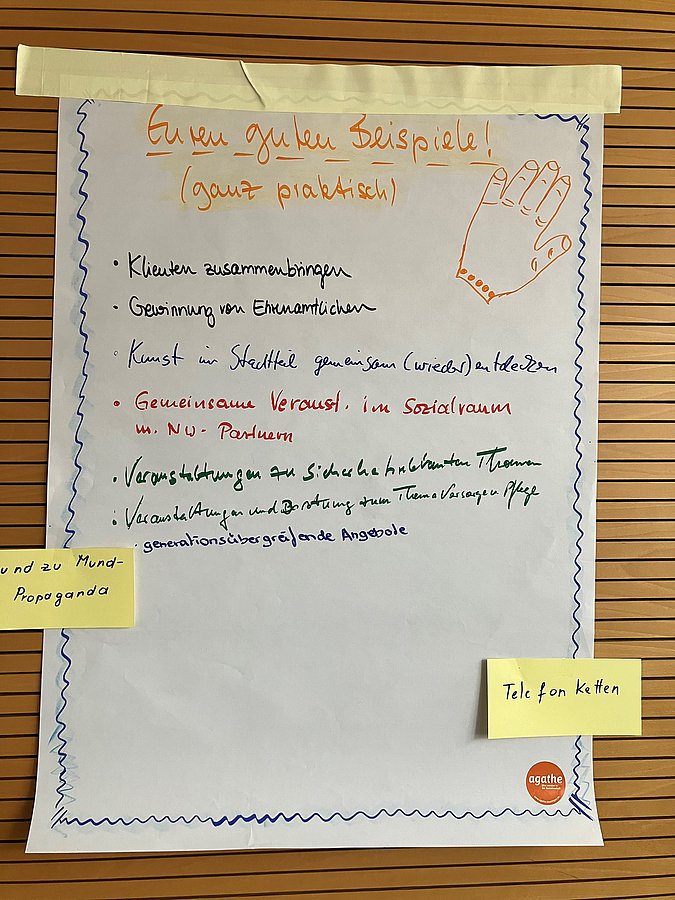 Euren guten Beispiele!
(ganz praktisch)
• Klienten zusammenbringen
• Gewinnung von Ehrenamtlichen
• Kunst im Stadtteil gemeinsam (wieder) entdecken
• Gemeinsame Veranst. im Sozialraum
m. NW- Partnern
• Veranstaltungen zu sicherheitsrelevanten Themen
• Veranstaltungen und Beratung zum Thema Vorsorge Pflege
• generationsübergreifende Angebole
und zu Mund-
Propaganda
Telefon Ketten
agathe